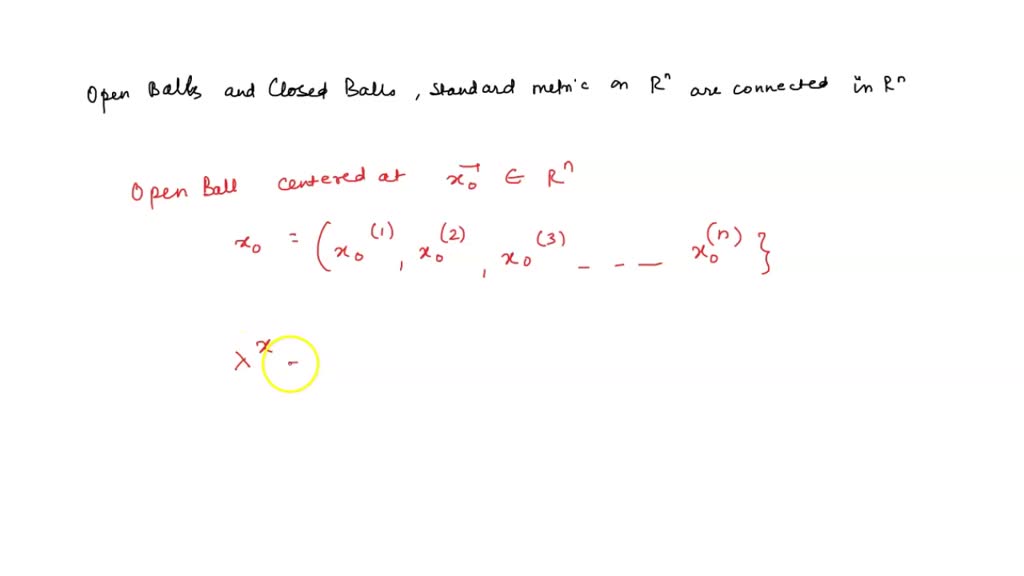 Open Balls and Closed Balls , standard metric on Rⁿ are connected in Rⁿ
Open Ball centered at x⃗₀ ∈ Rⁿ
x₀ = (x₀⁽¹⁾, x₀⁽²⁾, x₀⁽³⁾ - - — x₀⁽ⁿ⁾}
λˣ -